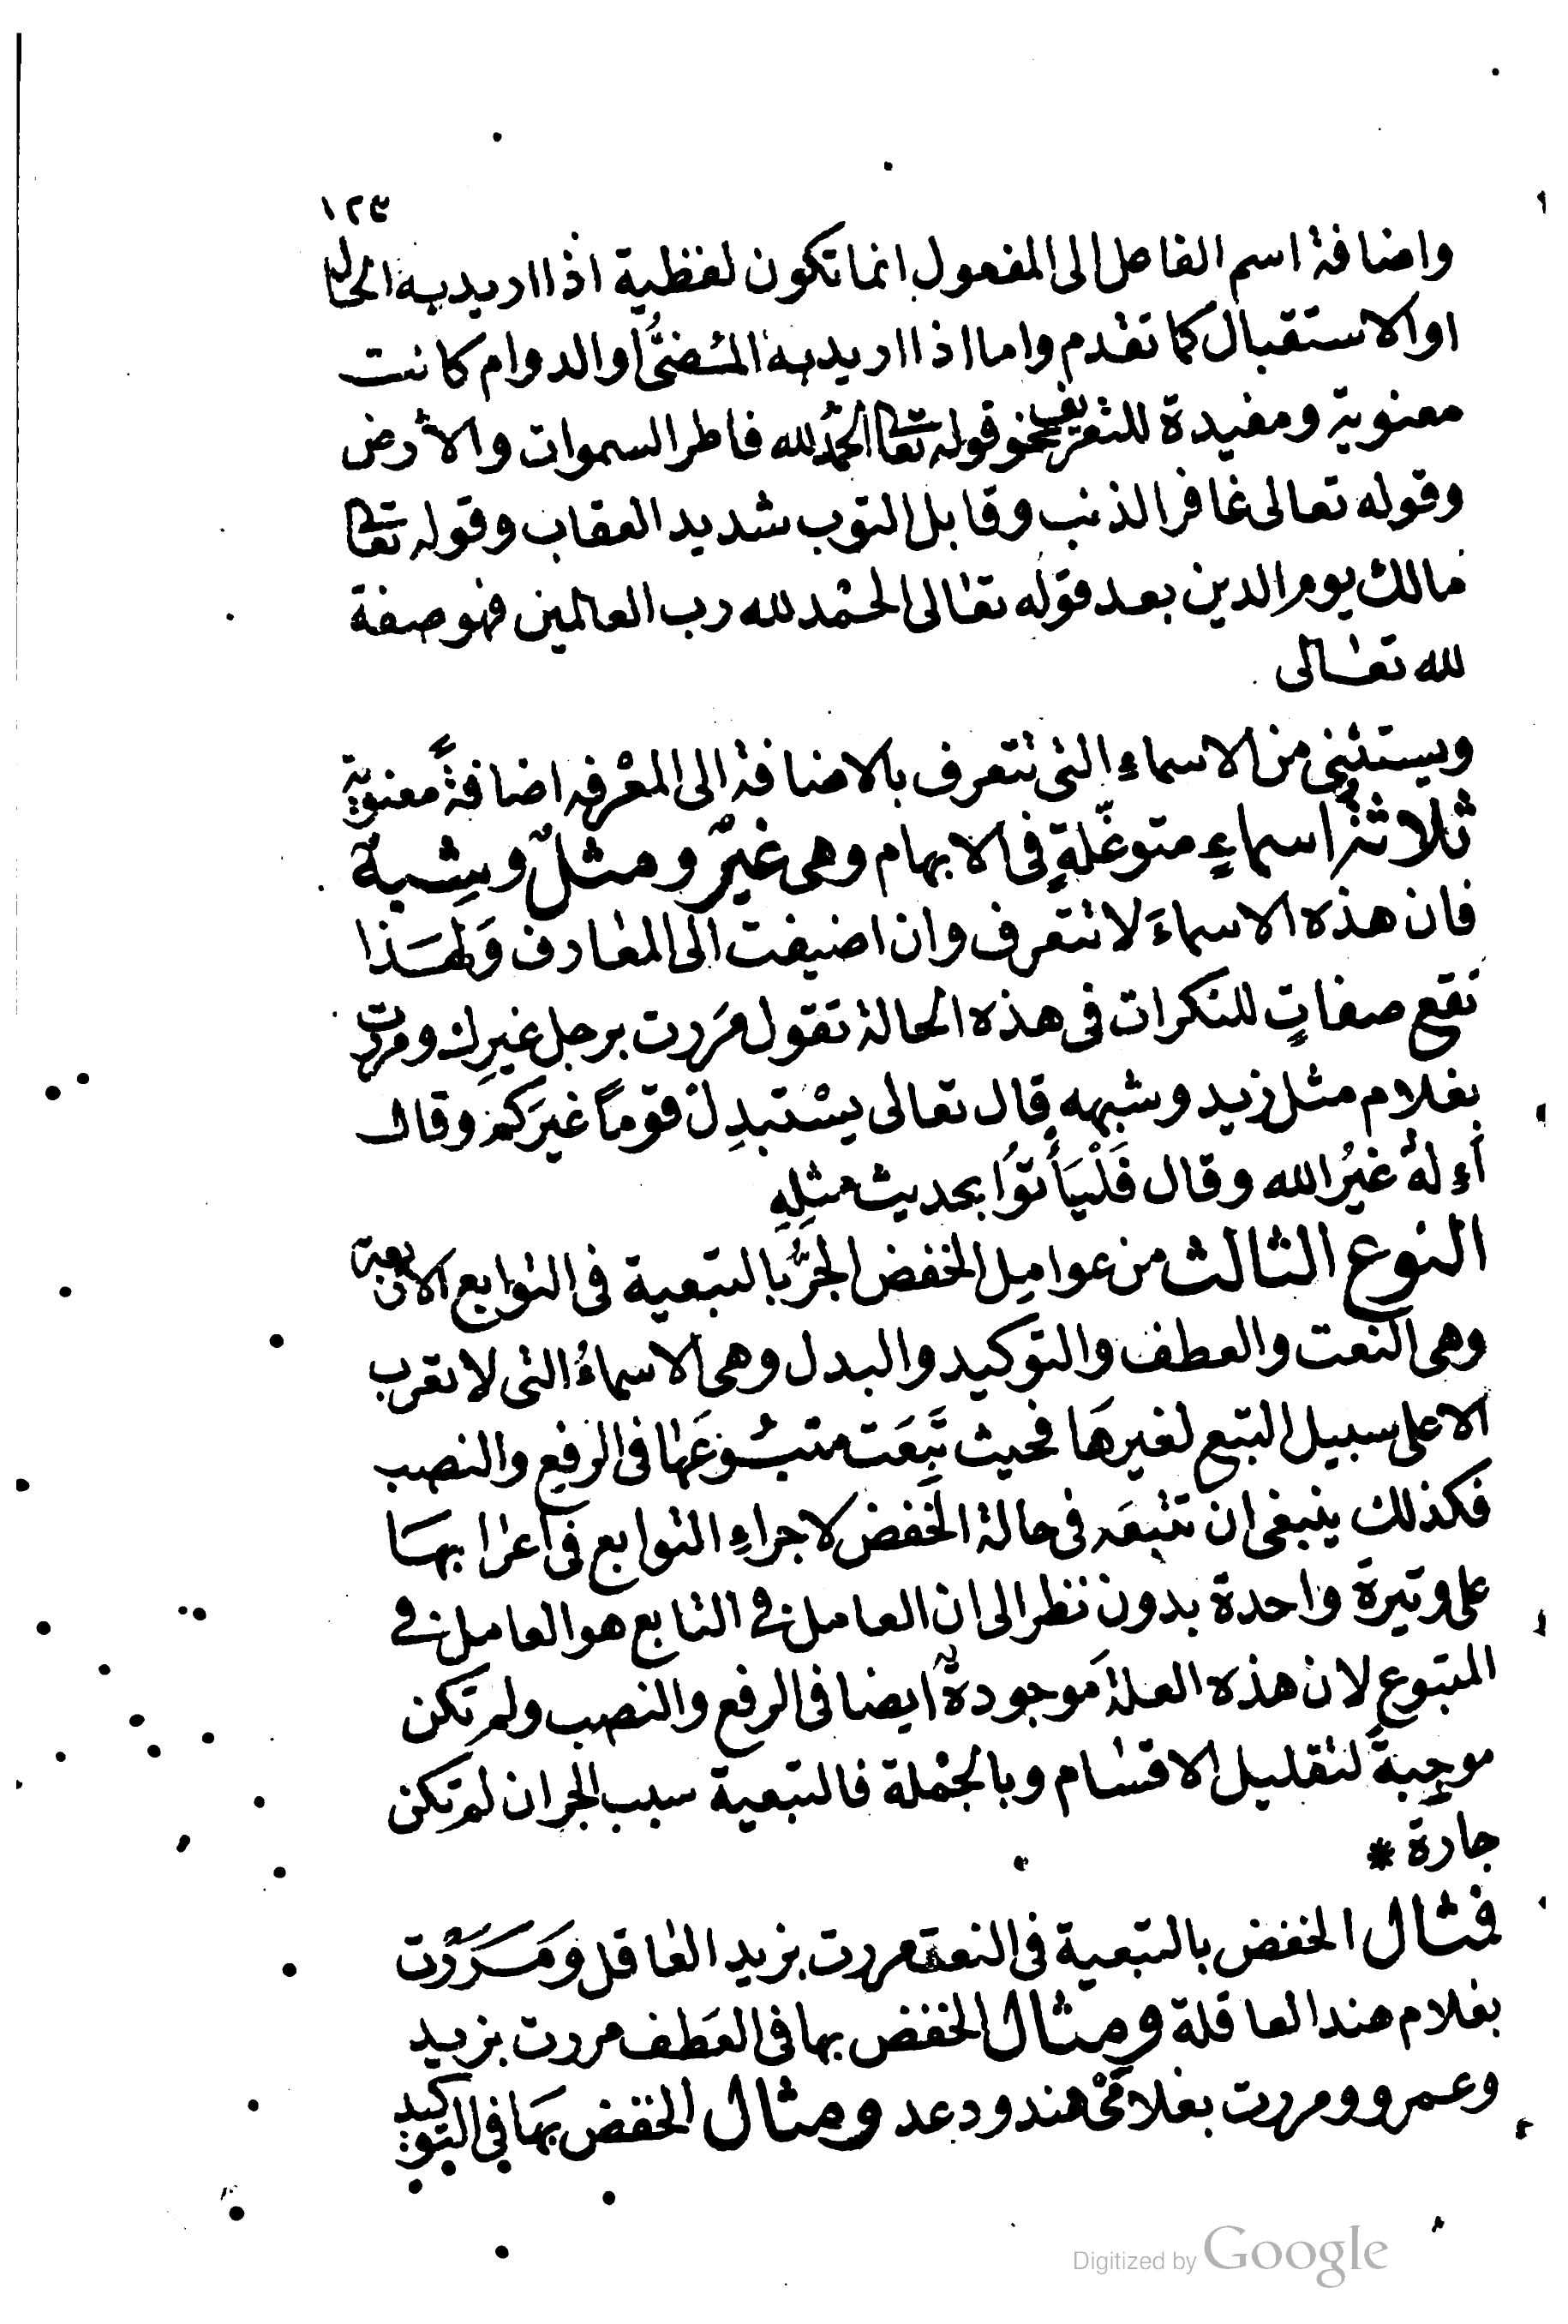 ١٢٣
واضافة اسم الفاعل الى المفعول انما تكون لفظية اذا اريد به الحال
او الاستقبال كما تقدم واما اذا اريد به المُضىُّ او الدوام كانت
معنوية ومفيدة للتعريف نحو قوله تعا الحمدُ لله فاطر السموات والأرض
وقوله تعالى غافر الذنب وقابل التوب شديد العقاب وقوله تعا
مالك يوم الدين بعد قوله تعالى الحمْد لله رب العالمين فهو صفة
لله تعالى
ويستثنى من الاسماءِ التى تتعرف بالاضافة الى المعْرفه اضافةً معنوية
ثلاثة اسماءٍ متوغّلةٍ فى الابهام وهى غيرٌ ومثلٌ وشِبهٌ
فان هذه الاسماءَ لا تتعرف وان اضيفت الى المعارف وَلهَذا
تقع صفاتٍ للنكرات فى هذه الحالة تقول مَررت برجل غيرِك ومررت
بغلام مثل زيد وشبههِ قال تعالى يسْتبدِل قومًا غيرَكم وقال
أءِلهٌ غيرُ الله وقال فَلْيَأْتوُا بحديث مثلِهِ
النوع الثالث من عوامِل الخفض الجرُّ بالتبعية فى التوابع الاربعة
وهى النعت والعطف والتوكيد والبدل وهى الاسماءُ التى لا تعرب
الا على سبيل التبع لغيرهَا فحيث تَبِعَت متبُوعَها فى الرفع والنصب
فكذلك ينبغى ان تتبعَه فى حالة الخفض لاجراءِ التوابع فى اعرابهَا
على وتيرة واحدة بدون نظر الى ان العامل فى التابع هو العامل فى
المتبوع لان هذه العلةَ موجودةٌ ايضا فى الرفع والنصب ولم تكن
موجِبةً لتقليل الاقسام وبالجمْلة فالتبعية سبب الجر ان لم تكن
جارة *
فمثال الخفض بالتبعية فى النعت مررت بزيد العاقل ومَررْت
بغلام هند العاقلة ومثال الخفض بها فى العَطف مررت بزيد
وعمرو ومررت بغلامَىْ هند ودعد ومثال الخفض بهَا فى التوكيد
Digitized by Google